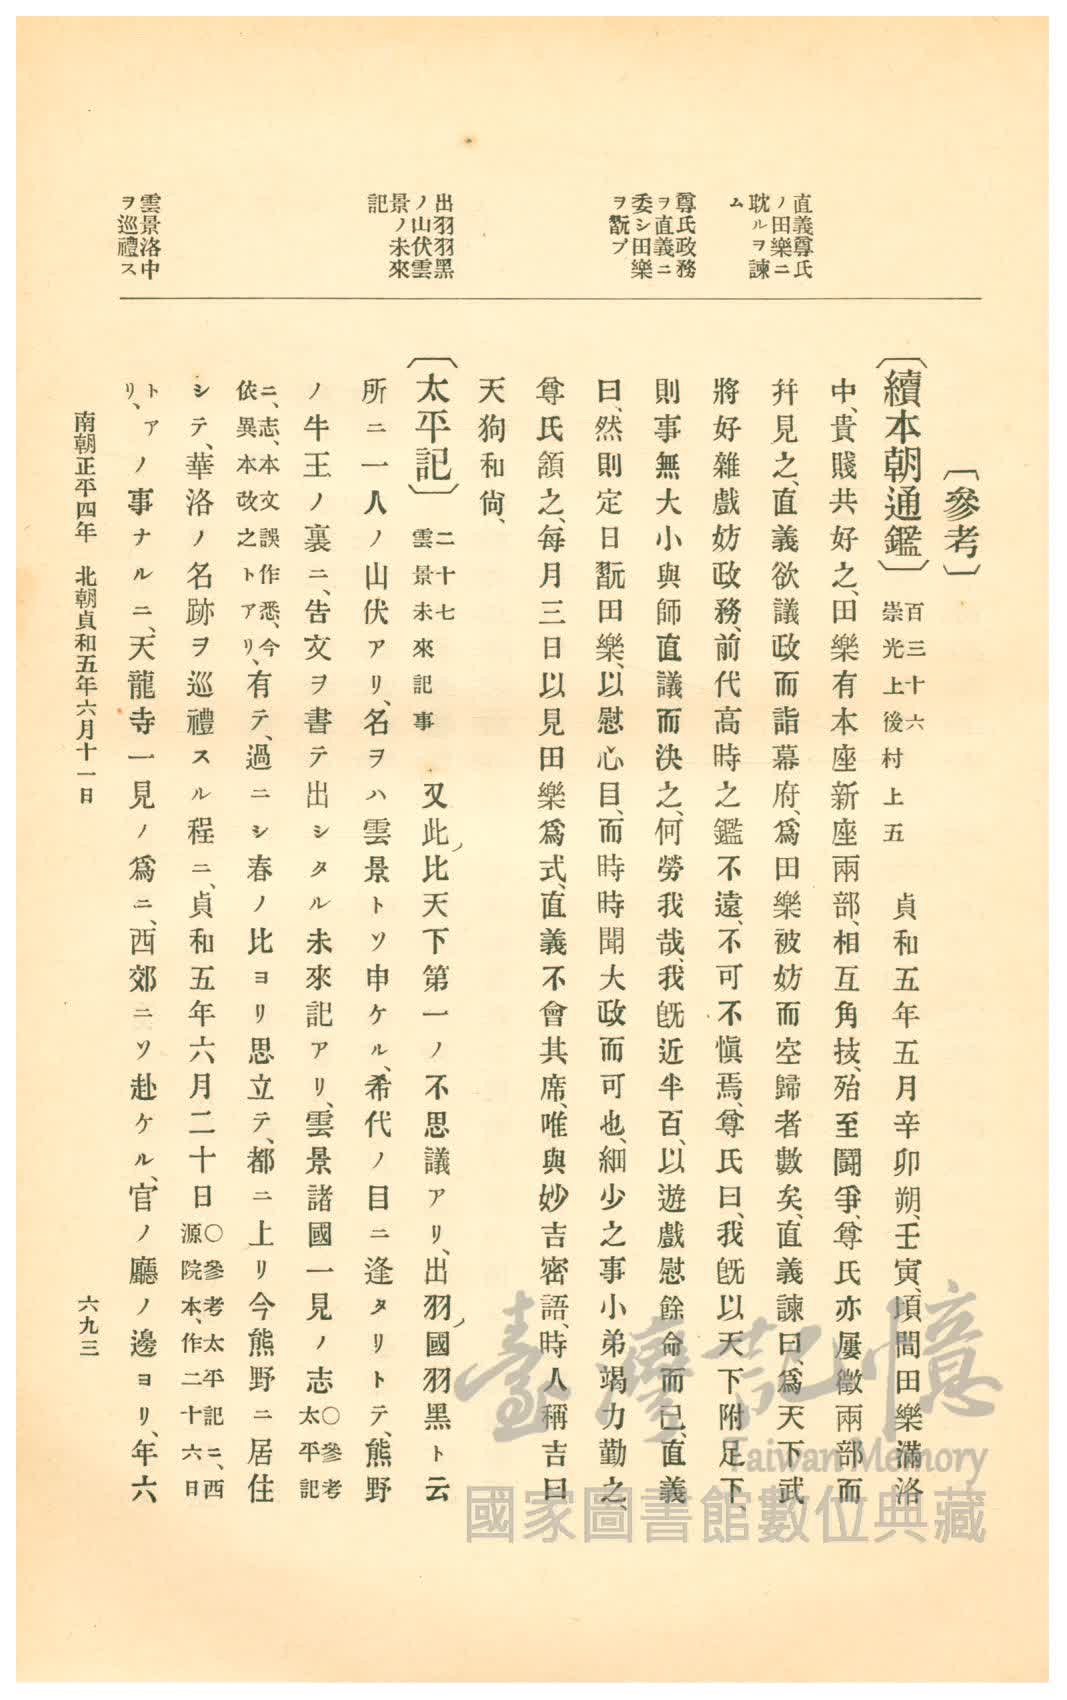 直義尊氏
ノ田樂ニ
耽ルヲ諫
ム
尊氏政務
ヲ直義ニ
委シ田樂
ヲ翫プ
出羽羽黑
ノ山伏雲
景ノ未來
記
雲景洛中
ヲ巡禮ス
〔參考〕
〔續本朝通鑑〕百三十六崇光上後村上五　貞和五年五月辛卯朔、壬寅、頃間田樂滿洛
中、貴賤共好之、田樂有本座新座兩部、相互角技、殆至鬪爭、尊氏亦屢徵兩部而
幷見之、直義欲議政而詣幕府、爲田樂被妨而空歸者數矣、直義諫曰、爲天下武
將好雜戲妨政務、前代高時之鑑不遠、不可不愼焉、尊氏曰、我旣以天下附足下、
則事無大小與師直議而決之、何勞我哉、我旣近半百、以遊戲慰餘命而已、直義
曰、然則定日翫田樂、以慰心目、而時時聞大政而可也、細少之事小弟竭力勤之、
尊氏頷之、每月三日以見田樂爲式、直義不會其席、唯與妙吉密語、時人稱吉曰
天狗和尙、
〔太平記〕二十七雲景未來記事　又此ノ比天下第一ノ不思議アリ、出羽ノ國羽黑ト云
所ニ一人ノ山伏アリ、名ヲハ雲景トソ申ケル、希代ノ目ニ逢タリトテ、熊野
ノ牛王ノ裏ニ、告文ヲ書テ出シタル未來記アリ、雲景諸國一見ノ志〇參考太平記
ニ、志、本文誤作悉、今依異本改之トアリ、有テ、過ニシ春ノ比ヨリ思立テ、都ニ上リ今熊野ニ居住
シテ、華洛ノ名跡ヲ巡禮スル程ニ、貞和五年六月二十日〇參考太平記ニ、西源院本、作二十六日
トアリ、ノ事ナルニ、天龍寺一見ノ爲ニ、西郊ニソ赴ケル、官ノ廳ノ邊ヨリ、年六
南朝正平四年　北朝貞和五年六月十一日
六九三
臺灣記憶
Taiwan Memory
國家圖書館數位典藏